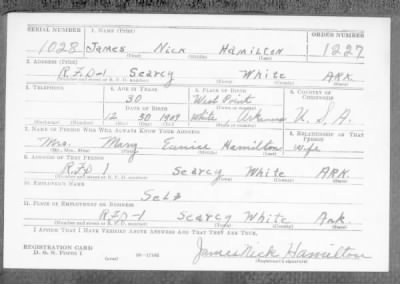 SERIAL NUMBER 1. NAME (Print) ORDER NUMBER
1028 James Nick Hamilton 1227
(First) (Middle) (Last)
2. ADDRESS (Print)
R.F.D-1 Searcy White ARK.
(Number and street or R. F. D. number) (Town) (County) (State)
3. TELEPHONE 4. AGE IN YEARS 5. PLACE OF BIRTH 6. COUNTRY OF CITIZENSHIP
30 West Point
DATE OF BIRTH (Town or county)
12 30 1909 White, Arkansas U. S. A.
(Exchange) (Number) (Mo.) (Day) (Yr.) (State or country)
7. NAME OF PERSON WHO WILL ALWAYS KNOW YOUR ADDRESS 8. RELATIONSHIP OF THAT PERSON
Mrs. Mary Eunice Hamilton wife
(Mr., Mrs., Miss) (First) (Middle) (Last)
9. ADDRESS OF THAT PERSON
RFD 1 Searcy White ARK.
(Number and street or R. F. D. number) (Town) (County) (State)
10. EMPLOYER'S NAME
Self
11. PLACE OF EMPLOYMENT OR BUSINESS
RFD-1 Searcy White Ark.
(Number and street or R. F. D. number) (Town) (County) (State)
I AFFIRM THAT I HAVE VERIFIED ABOVE ANSWERS AND THAT THEY ARE TRUE.
REGISTRATION CARD
D. S. S. Form 1
(over) 16-17105
James Nick Hamilton
(Registrant's signature)